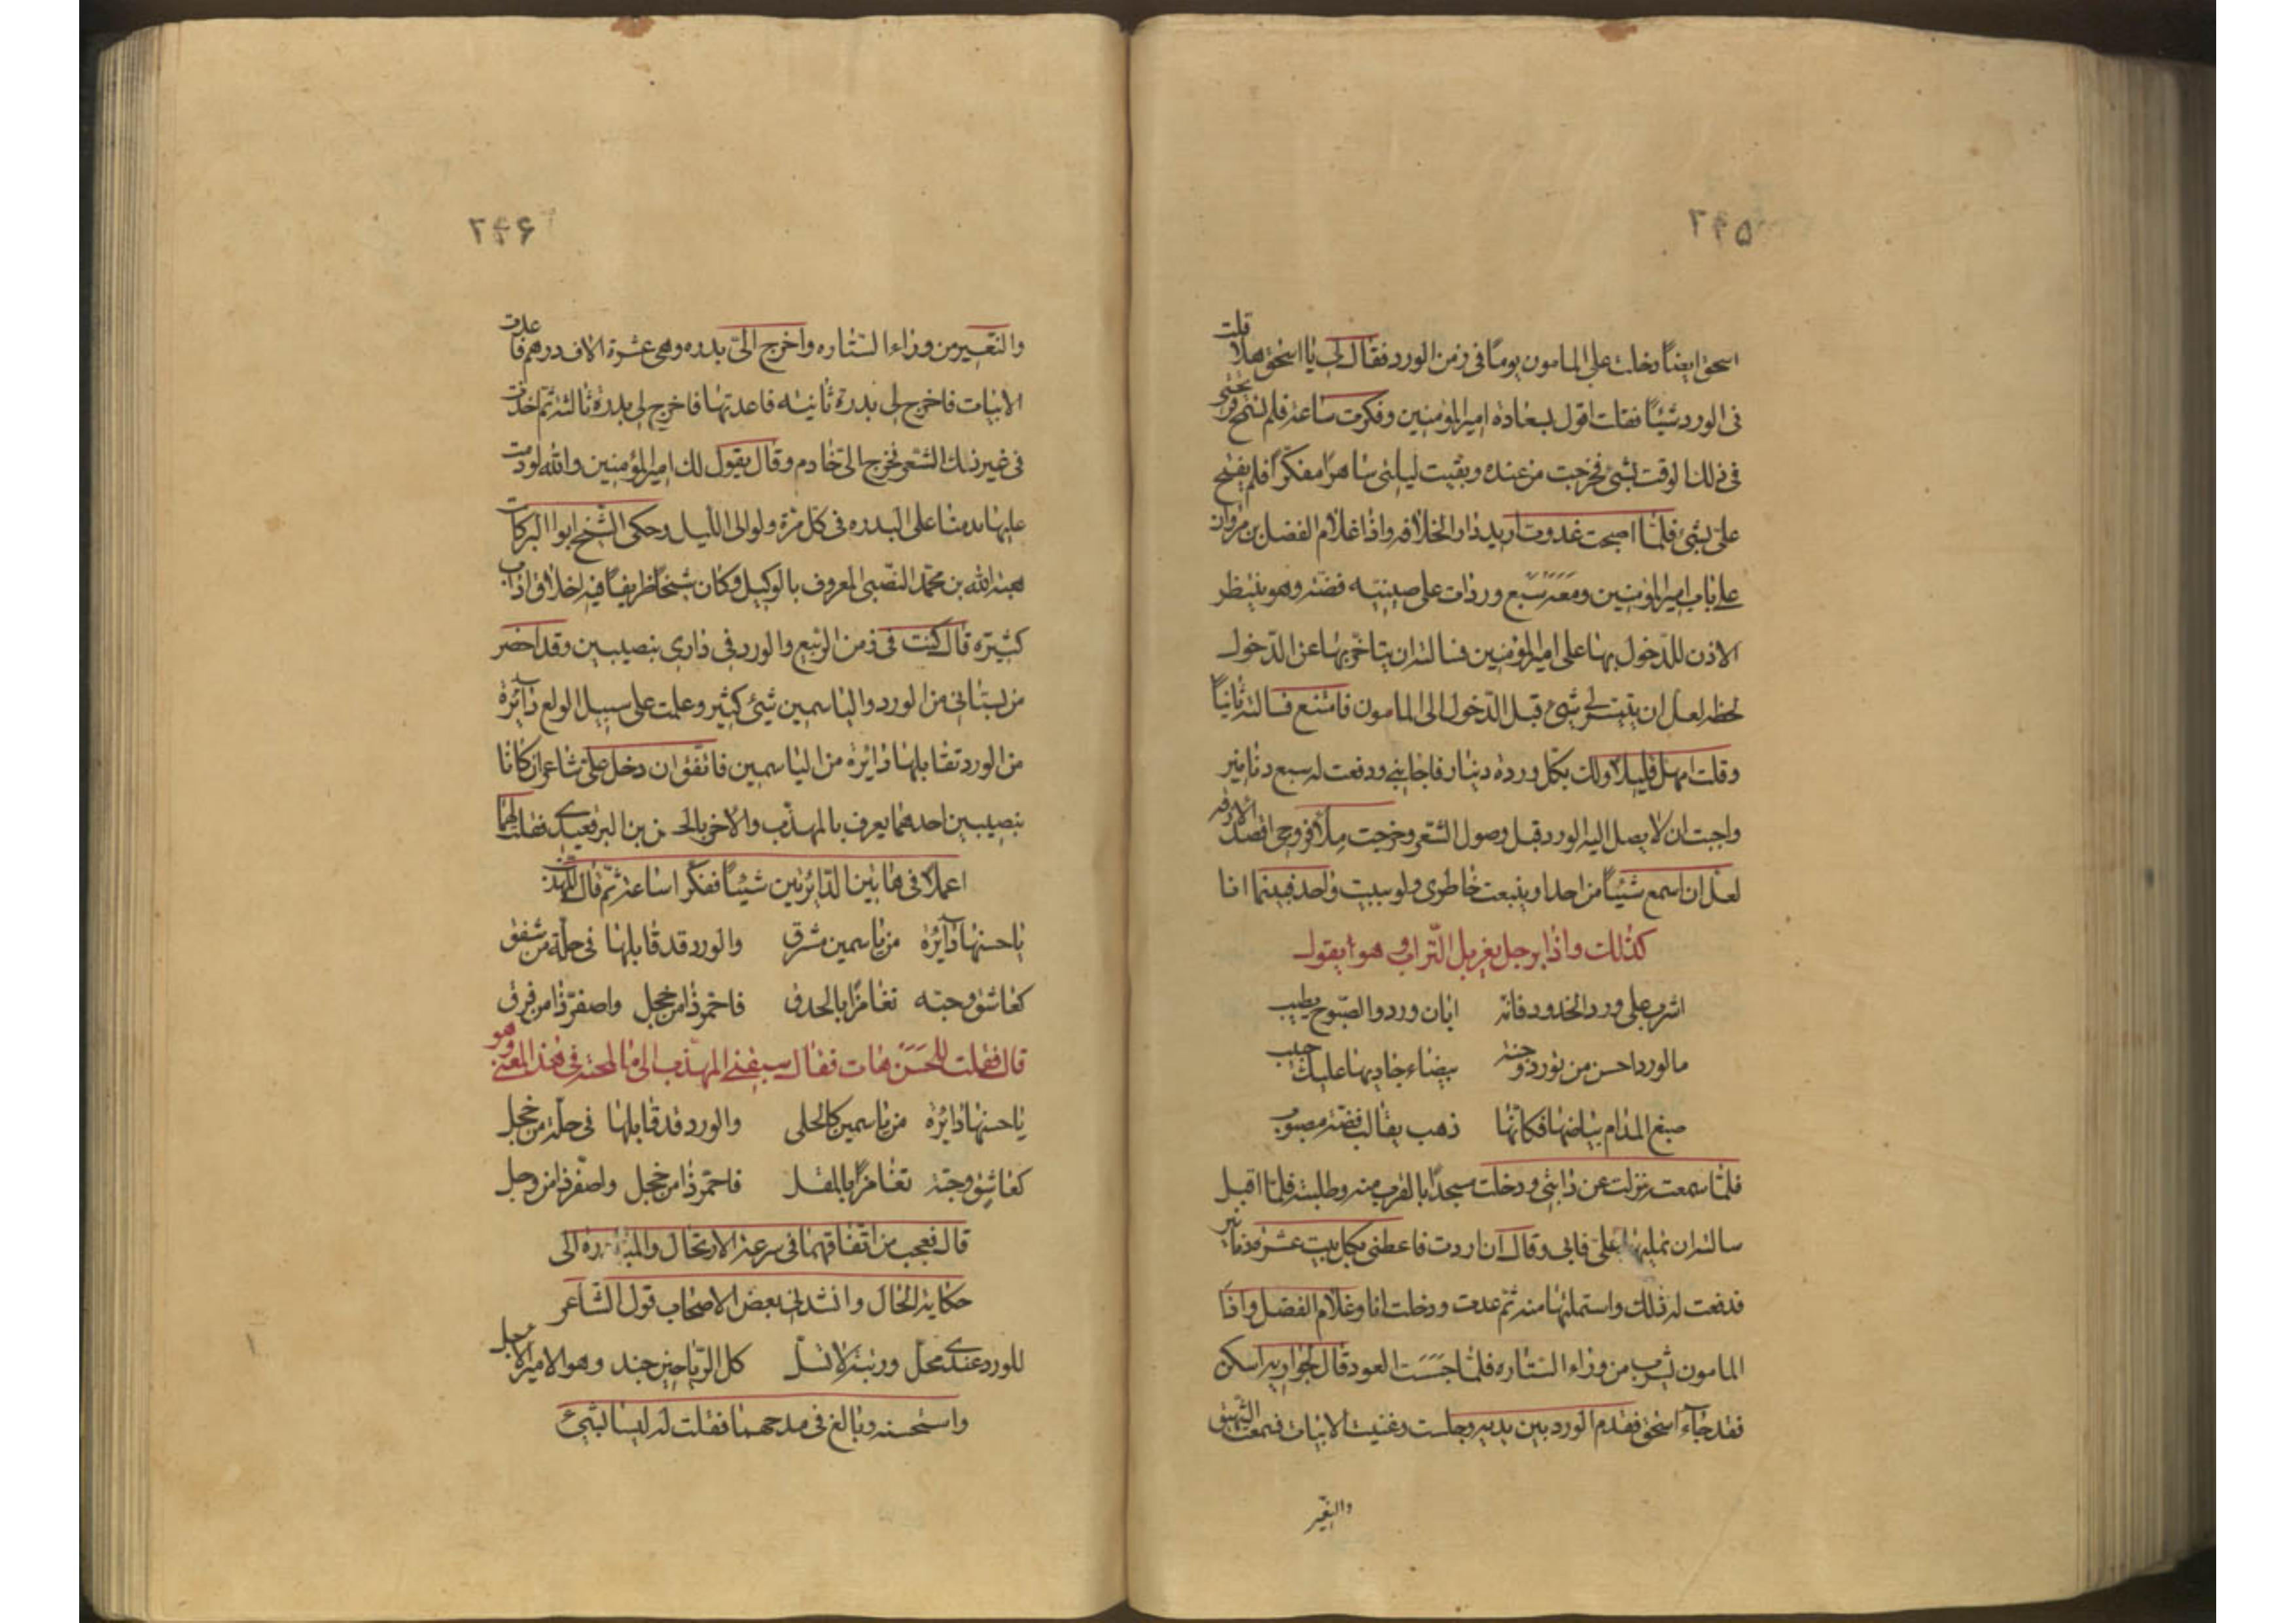 ۲۴۵
اسحق ايضاً دخلت على المامون يوماً فى زمن الورد فقال لى يا اسحق هلا قلت
فى الورد شيئاً فقلت اقول بسعادة امير المؤمنين وفكرت ساعة فلم تسمح قريحتى
فى ذلك الوقت بشئ فخرجت من عنده وبقيت ليلتى ساهراً مفكّراً فلم يفتح
علىّ بشئ فلمّا اصبحت غدوت اريد دار الخلافه واذا غلام الفضل بن مروان
على باب امير المؤمنين ومعه سبع وردات على صينيه فضة وهو ينتظر
الاذن للدّخول بها على امير المؤمنين فسالته ان يتاخّر بها عن الدّخول
لحظه لعل ان يتيسر لى شئ قبل الدّخول الى المامون فامتنع فسالته ثانياً
وقلت امهل قليلا ولك بكل وردة دينار فاجابنى ودفعت له سبع دنانير
واحببت ان لا يصل اليه الورد قبل وصول الشعر وخرجت افصد الازقه
لعل ان اسمع شيئاً من احد او ينبعث خاطرى ولو ببيت واحد فبينما انا
كذلك واذا برجل يغربل التّراب وهو يقول
اشرب على ورد الخدود فانه ابان ورد والصّبوح يطيب
ما الورد احسن من تورد وجنة بيضاء جاد بها عليك حبيب
صبغ المدام بياضها فكانّها ذهب بقالب فضة مصبوب
فلمّا سمعت نزلت عن دابتى ودخلت مسجداً بالقرب منه وطلبته فلمّا اقبل
سالته ان يمليها علىّ فابى وقال ان اردت فاعطنى بكل بيت عشرة دنانير
فدفعت له ذلك واستمليتها منه ثم عدت ودخلت انا وغلام الفضل واذا
المامون يشرب من وراء الستاره فلمّا جسَسَت العود قال لجواريه اسكن
فقد جاء اسحق فقدم الورد بين يديه وجلست وغنيت الابيات فسمعت الشّهيق
والنعير
۲۴۶
والنعير من وراء الستاره واخرج الىّ بدره وهى عشرة الاف درهم فاعدت
الابيات فاخرج لى بدرة ثانيه فاعدتها فاخرج لى بدرة ثالثة ثم اخذت
فى غير ذلك الشعر فخرج الىّ خادم وقال يقول لك امير المؤمنين والله لو دمت
عليها لدمنا على البدره فى كل مرة ولو الى الليل وحكى الشيخ ابو البركات
هبة الله بن محمّد النصّيبى المعروف بالوكيل وكان شيخاً ظريفاً فيه اخلاق اداب
كثيرة قال كنت فى زمن الربيع والورد فى دارى بنصيبين وقد احضر
من بستانى من الورد والياسمين شئ كثير وعملت على سبيل الولع دآئرة
من الورد تقابلها دايرة من الياسمين فاتفق ان دخل علىّ شاعران كانا
بنصيبين احدهما يعرف بالمهذّب والاخر بالحسن بن البرقعيدى فقلت لهما
اعملا فى هاتين الدّايرتين شيئاً ففكّرا ساعة ثمّ قال المهذب
يا حسنها دآئرة من ياسمين مشرق والورد قد قابلها فى حلّة من شفق
كعاشق وحبّه تغامزا بالحدق فاحمّر ذا من خجل واصفرّ ذا من فرق
قال فقلت للحسن هات فقال سبقنى المهذب الى ما لمحته فى هذ المعنى وهو
يا حسنها دائرة من ياسمين كالحلى والورد قد قابلها فى حلّة من خجل
كعاشق وحبّة تغامزا بالمقل فاحمّر ذا من خجل واصفّر ذا من وجل
قال فعجب من اتفاقهما فى سرعة الارتحال والمبادرة الى
حكاية الحال وانشدنى بعض الاصحاب قول الشاعر
للورد عندى محلّ ورتبة لا تمل كل الرّياحين جند وهو الامير الاجل
واستحسنه وبالغ فى مدحهما فقلت له ليسا بشئ